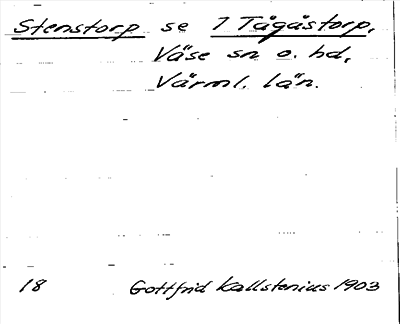 Stenstorp se 1 Tågåstorp,
Väse sn o. hd,
Värml. län.
18 Gottfrid Kallstenius 1903